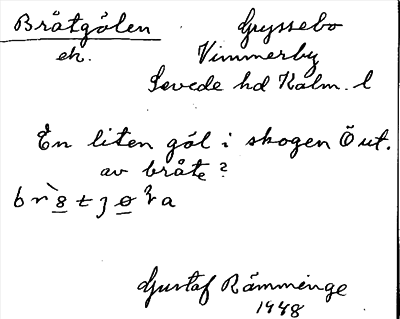 Bråtgölen Gryssebo
ek. Vimmerby
Sevede hd Kalm. l
En liten göl i skogen Ö ut.
av bråte?
Gustaf Rämminge
1948